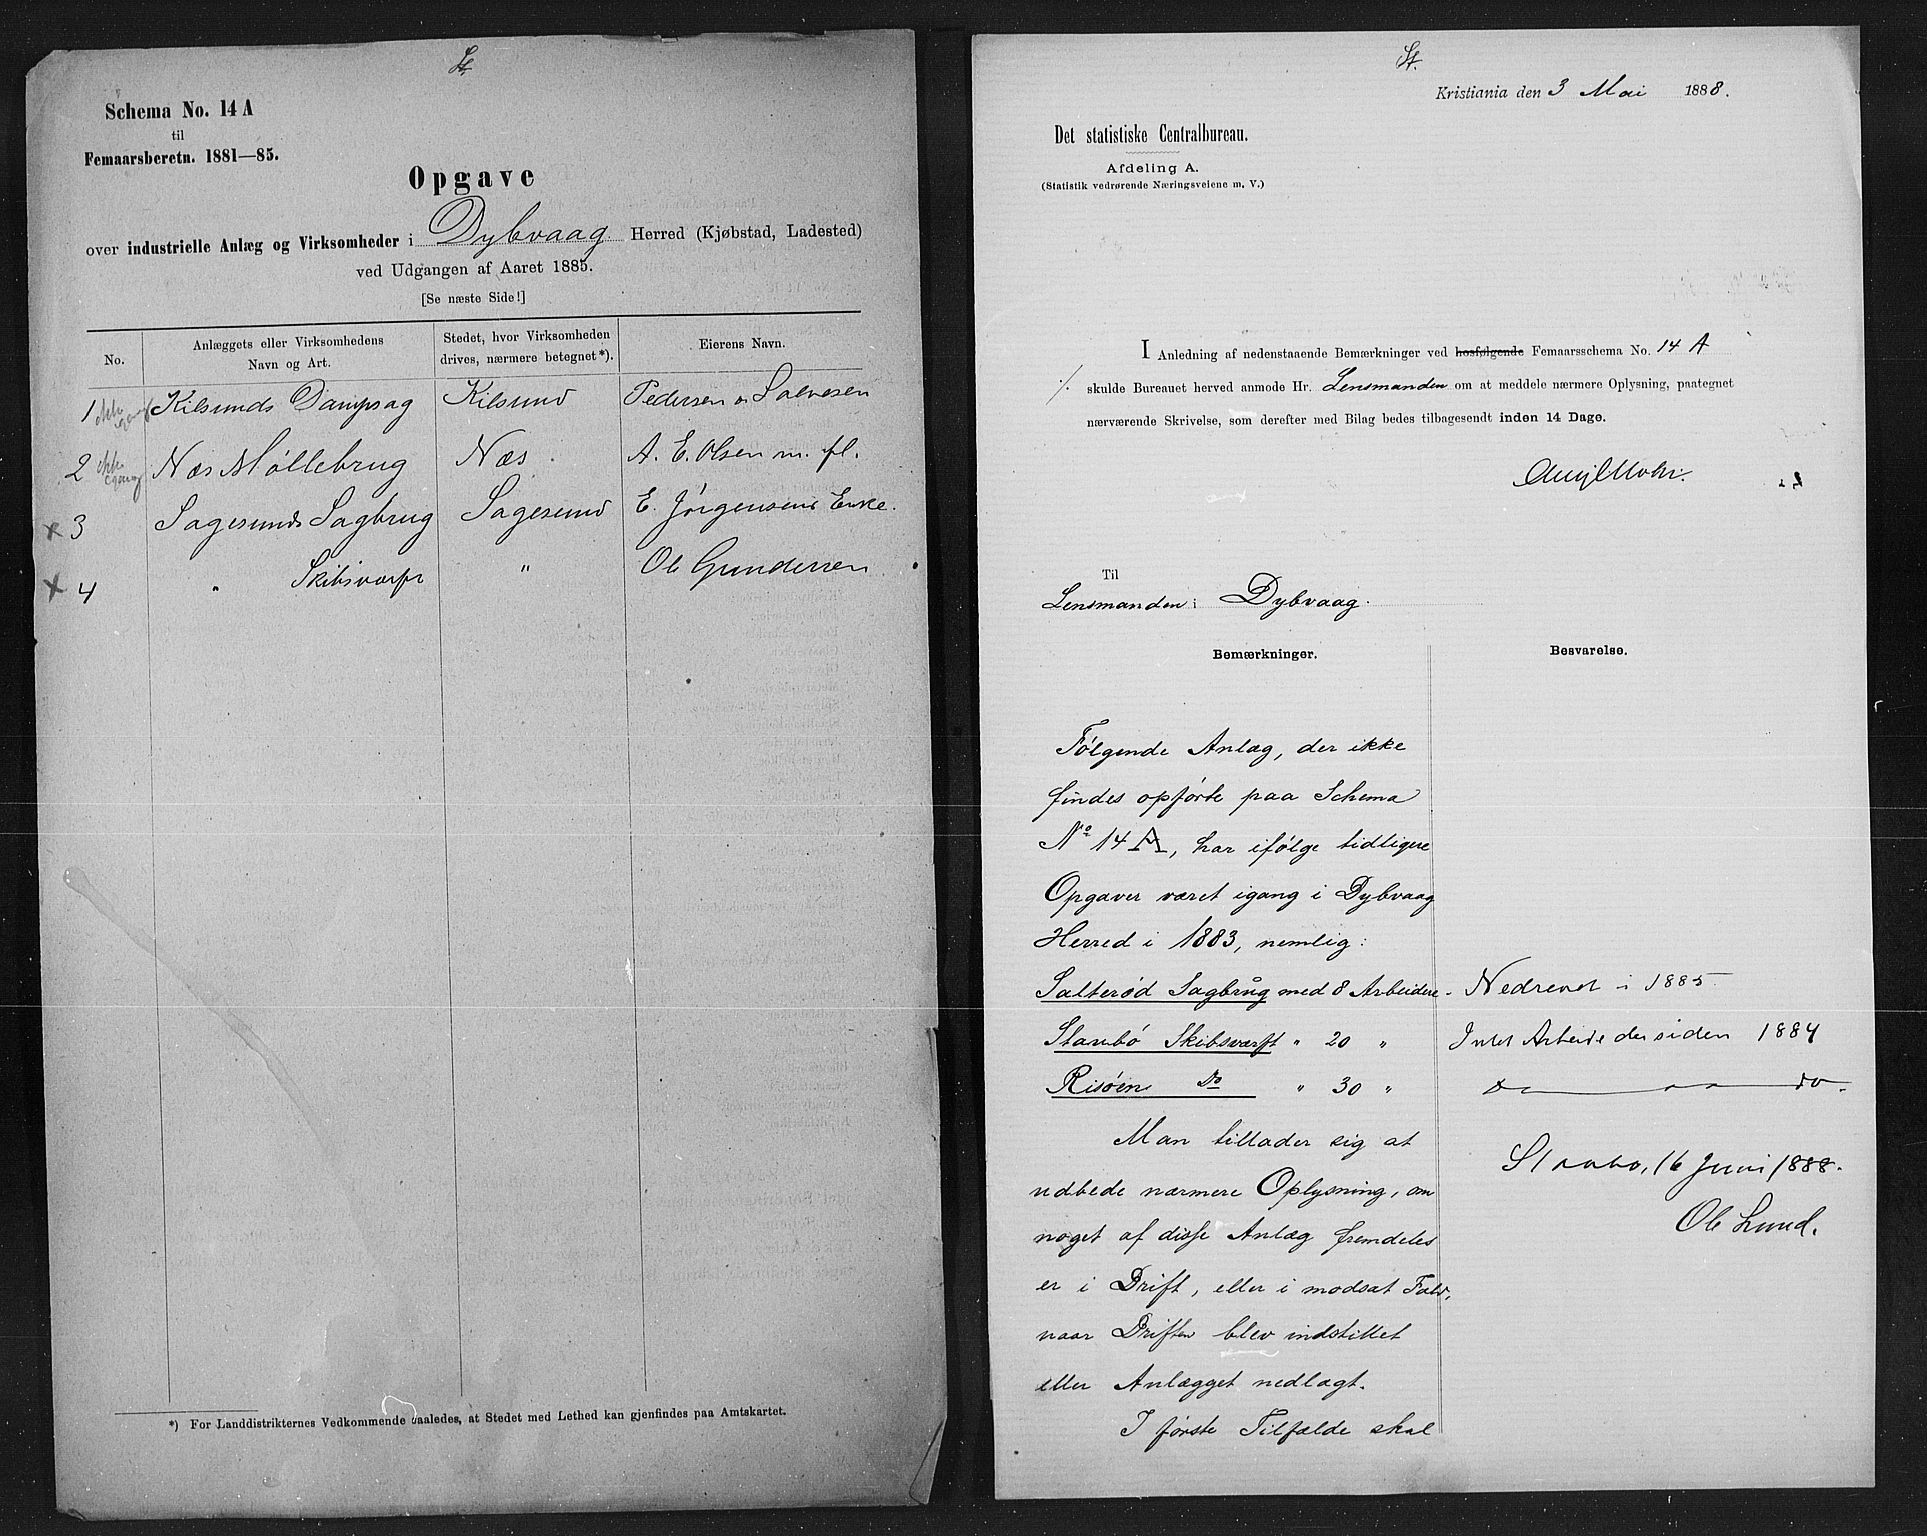 St.
Schema No. 14 A
til
Femaarsberetn. 1881—85.
Opgave
over industrielle Anlæg og Virksomheder i Dybvaag Herred (Kjøbstad, Ladested)
ved Udgangen af Aaret 1885.
[Se næste Side!]
No.
Anlæggets eller Virksomhedens
Navn og Art.
Stedet, hvor Virksomheden
drives, nærmere betegnet*).
Eierens Navn.
1 ikke igang Kilsunds Dampsag Kilsund Pedersen & Salvesen
2 ikke igang Næs Møllebrug Næs. A. E. Olsen m. fl.
x 3 Sagesunds Sagbrug Sagesund E. Jørgensens Enke.
x 4 " Skibsværft " Ole Gundersen
*) For Landdistrikternes Vedkommende saaledes, at Stedet med Lethed kan gjenfindes paa Amtskartet.
St.
Kristiania den 3 Mai 1888.
Det statistiske Centralbureau.
Afdeling A.
(Statistik vedrørende Næringsveiene m. V.)
I Anledning af nedenstaaende Bemærkninger ved hosfølgende Femaarsschema No. 14 A
./. skulde Bureauet herved anmode Hr. Lensmanden om at meddele nærmere Oplysning, paategnet
nærværende Skrivelse, som derefter med Bilag bedes tilbagesendt inden 14 Dage.
Til
Lensmanden i Dybvaag.
Bemærkninger.
Besvarelse.
Følgende Anlæg, der ikke
findes opførte paa Schema
No 14 A, har ifølge tidligere
Opgaver været igang i Dybvaag
Herred i 1883, nemlig:
Salterød Sagbrug med 8 Arbeidere - Nedrevet i 1885
Stanbø Skibsværft " 20 " Intet Arbeide der siden 1884
Risøen Do " 30 " do do.
Man tillader sig at
udbede nærmere Oplysning, om
noget af disse Anlæg fremdeles
er i Drift, eller i modsat Fald,
naar Driften blev indstillet
eller Anlægget nedlagt.
I første Tilfælde skal
Staubo, 16 Juni 1888.
Ole Lund.